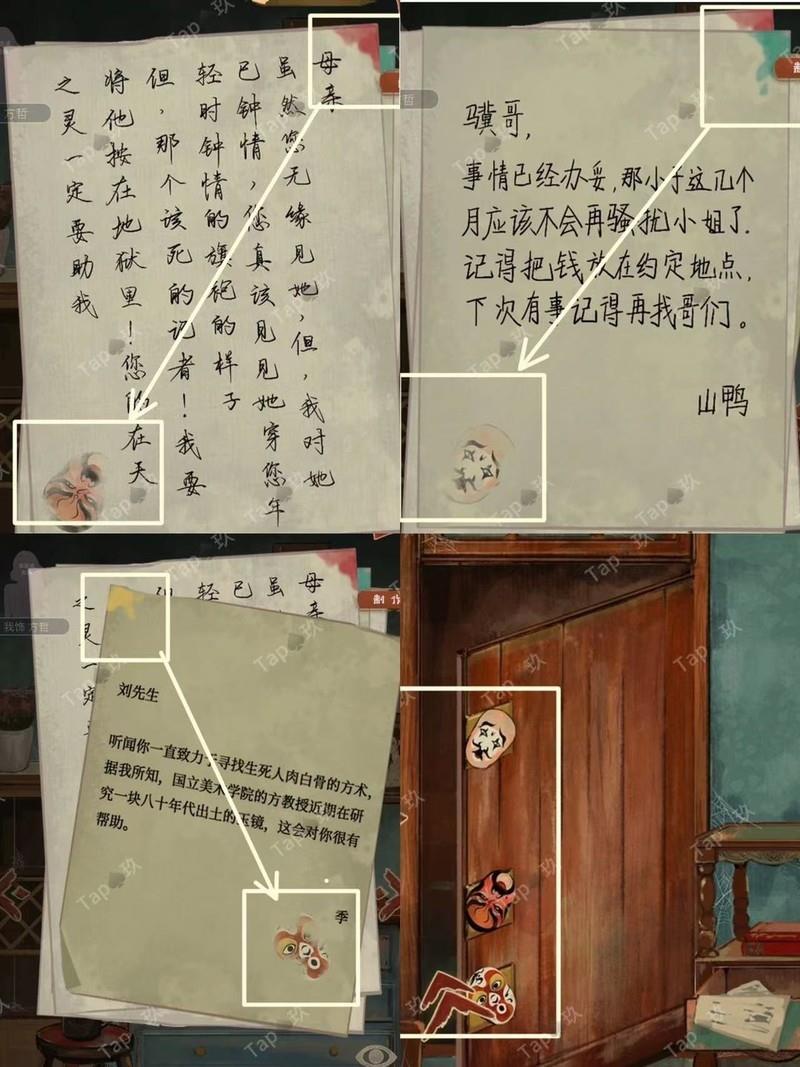 母亲
虽然您无缘见她,但,我对她
已钟情,您真该见见她穿您年
轻时钟情的旗袍的样子
但,那个该死的记者!我要
将他按在地狱里!您的在天
之灵一定要助我
方哲
骥哥,
事情已经办妥,那小子这几个
月应该不会再骚扰小姐了.
记得把钱放在约定地点,
下次有事记得再找哥们。
山鸭
哲
制
母亲
虽
已
轻
之灵一定
制作
我饰 方哲
刘先生
听闻你一直致力于寻找生死人肉白骨的方术,
据我所知, 国立美术学院的方教授近期在研
究一块八十年代出土的玉镜, 这会对你很有
帮助。
季
Tap 玖